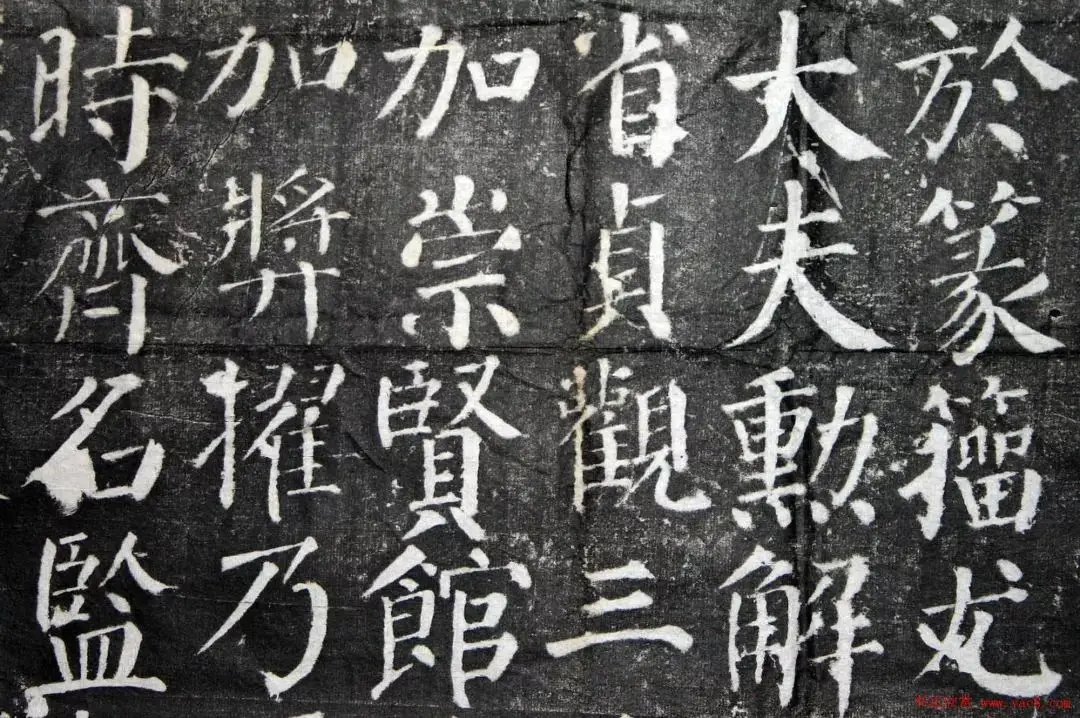 於篆籀尤
大夫勳解
省貞觀三
加崇賢館
加獎擢乃
時齊名監
www.yac8.com